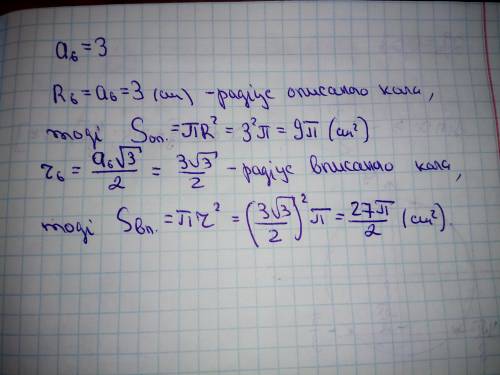 a₆ = 3
R₆ = a₆ = 3 (см) - радіус описаного кола,
тоді Sоп. = πR² = 3²π = 9π (см²)
r₆ = a₆√3/2 = 3√3/2 - радіус вписаного кола,
тоді Sвп. = πr² = (3√3/2)²π = 27π/2 (см²).